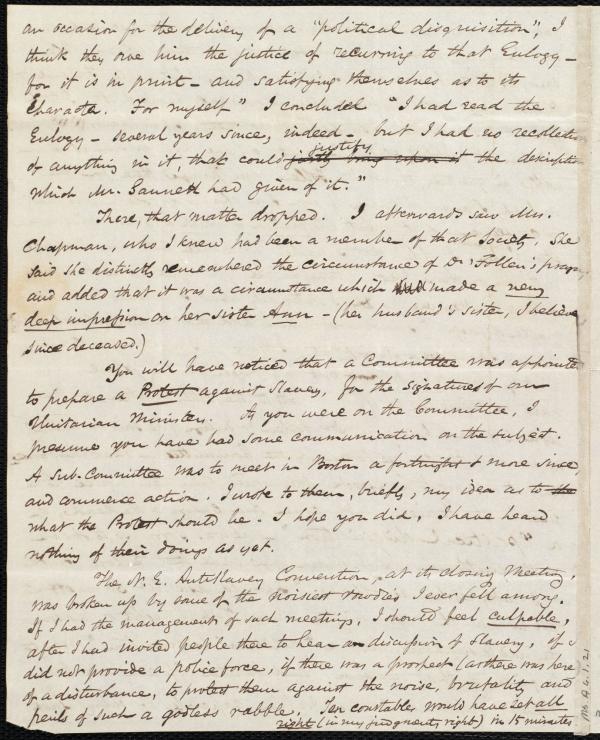 an occasion for the delivery of a "political disquisition", I
think they owe him the justice of recurring to that Eulogy -
for it is in print - and satisfying themselves as to its
character. For myself" I concluded "I had read the
Eulogy - several years since, indeed - but I had no recollection
of anything in it, that could justify justly bring upon it the description
which Mr. Gannett had given of it."
There, that matter dropped. I afterwards saw Mrs.
Chapman, who I knew had been a member of that Society. She
said she distinctly remembered the circumstance of Dr Follen's prayer,
and added that it was a circumstance which had made a very
deep impression on her sister Ann - (her husband's sister, I believe
since deceased.)
You will have noticed that a Committee was appointed
to prepare a Protest against Slavery, for the signatures of our
Unitarian Ministers. As you were on the Committee, I
presume you have had some communication on the subject.
A Sub-Committee was to meet in Boston a fortnight & more since,
and commence action. I wrote to them, briefly, my idea as to the
what the Protest should be. I hope you did. I have heard
nothing of their doings as yet.
The N. E. AntiSlavery Convention, at its closing meeting,
was broken up by some of the noisiest rowdies I ever fell among.
If I had the management of such meetings, I should feel culpable,
after I had invited people there to hear an discussion of Slavery, if I
did not provide a police force, if there was a prospect (as there was here)
of a disturbance, to protect them against the noise, brutality and
perils of such a godless rabble. Ten constables would have set all
right (in my judgment, right) in 15 minutes
Ms. A.6.1.21